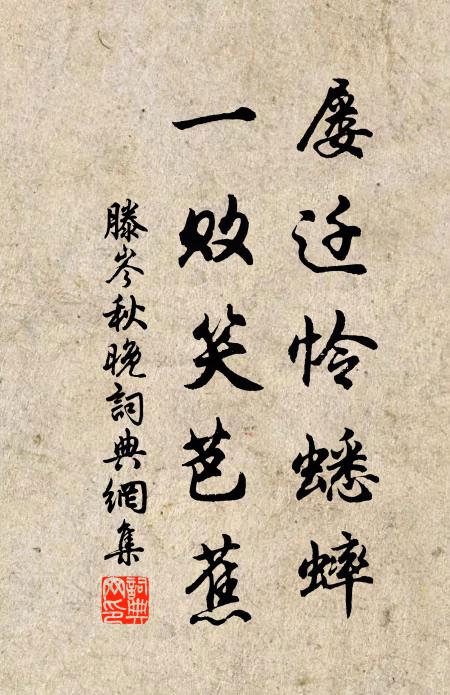 屡迁怜蟋蟀
一败笑芭蕉
滕岑秋晚詞典網集
詞典網印